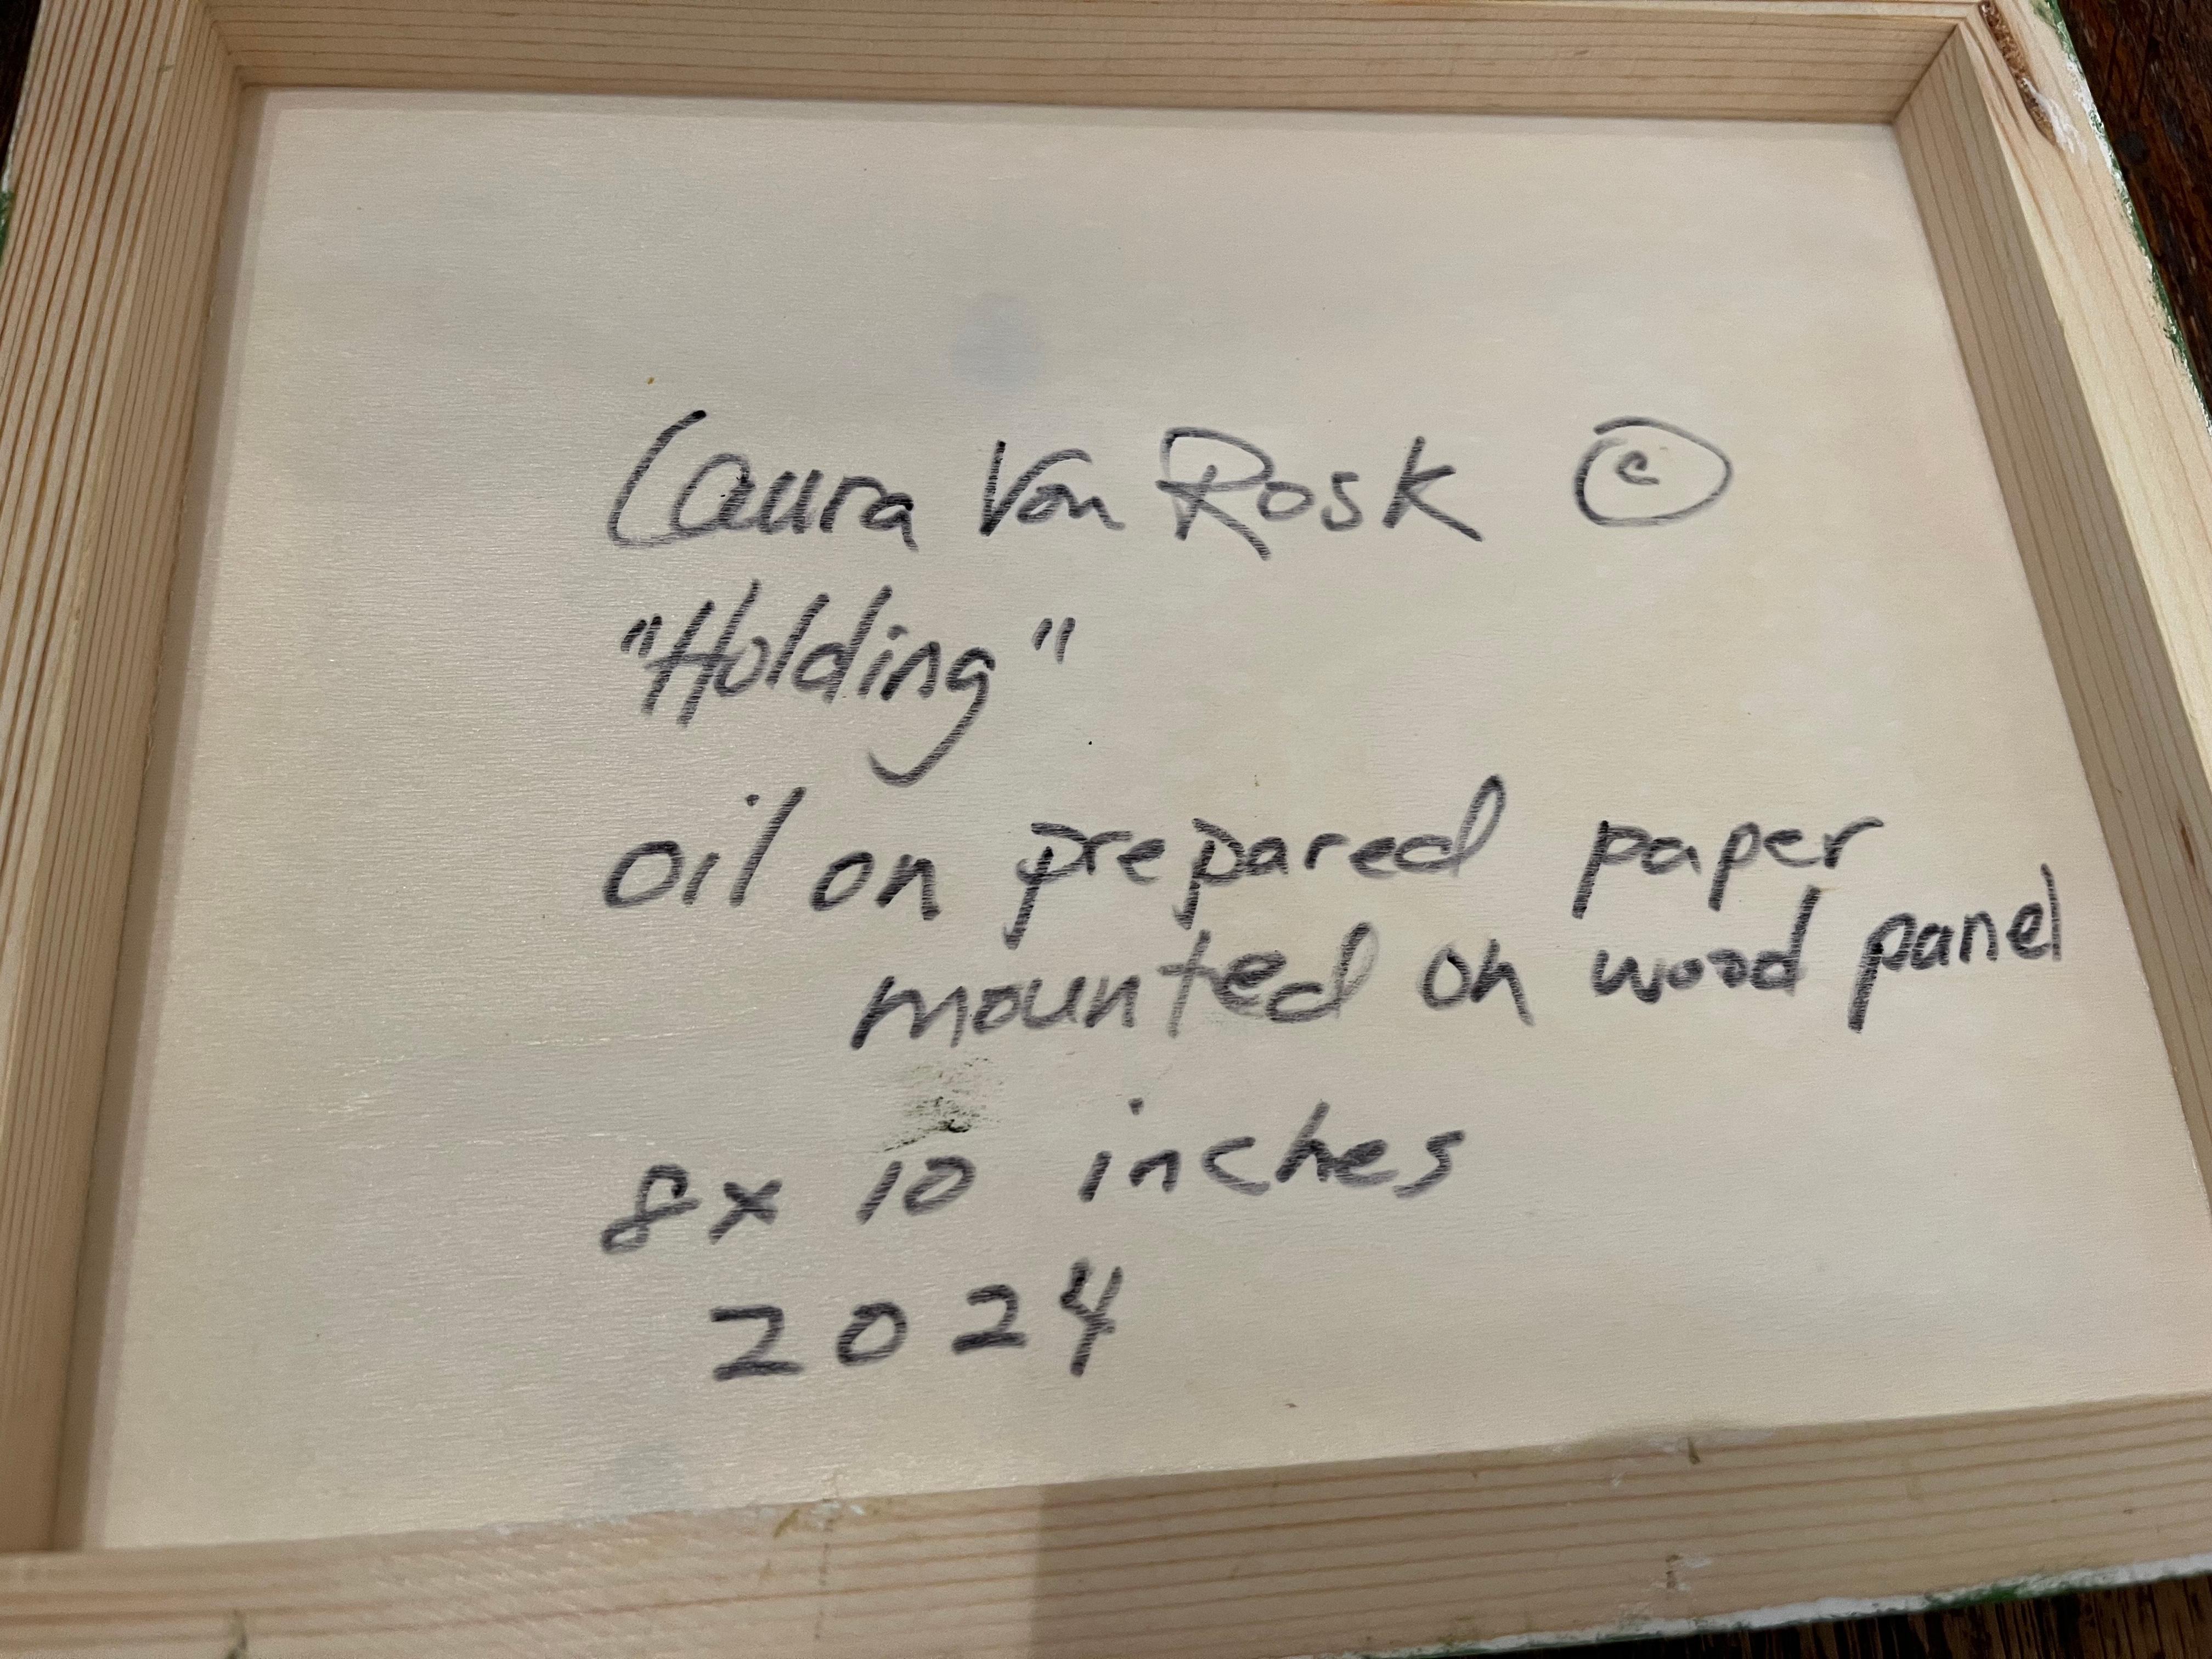 Laura Von Rosk ©
"Holding"
oil on prepared paper
mounted on wood panel
8 x 10 inches
2024